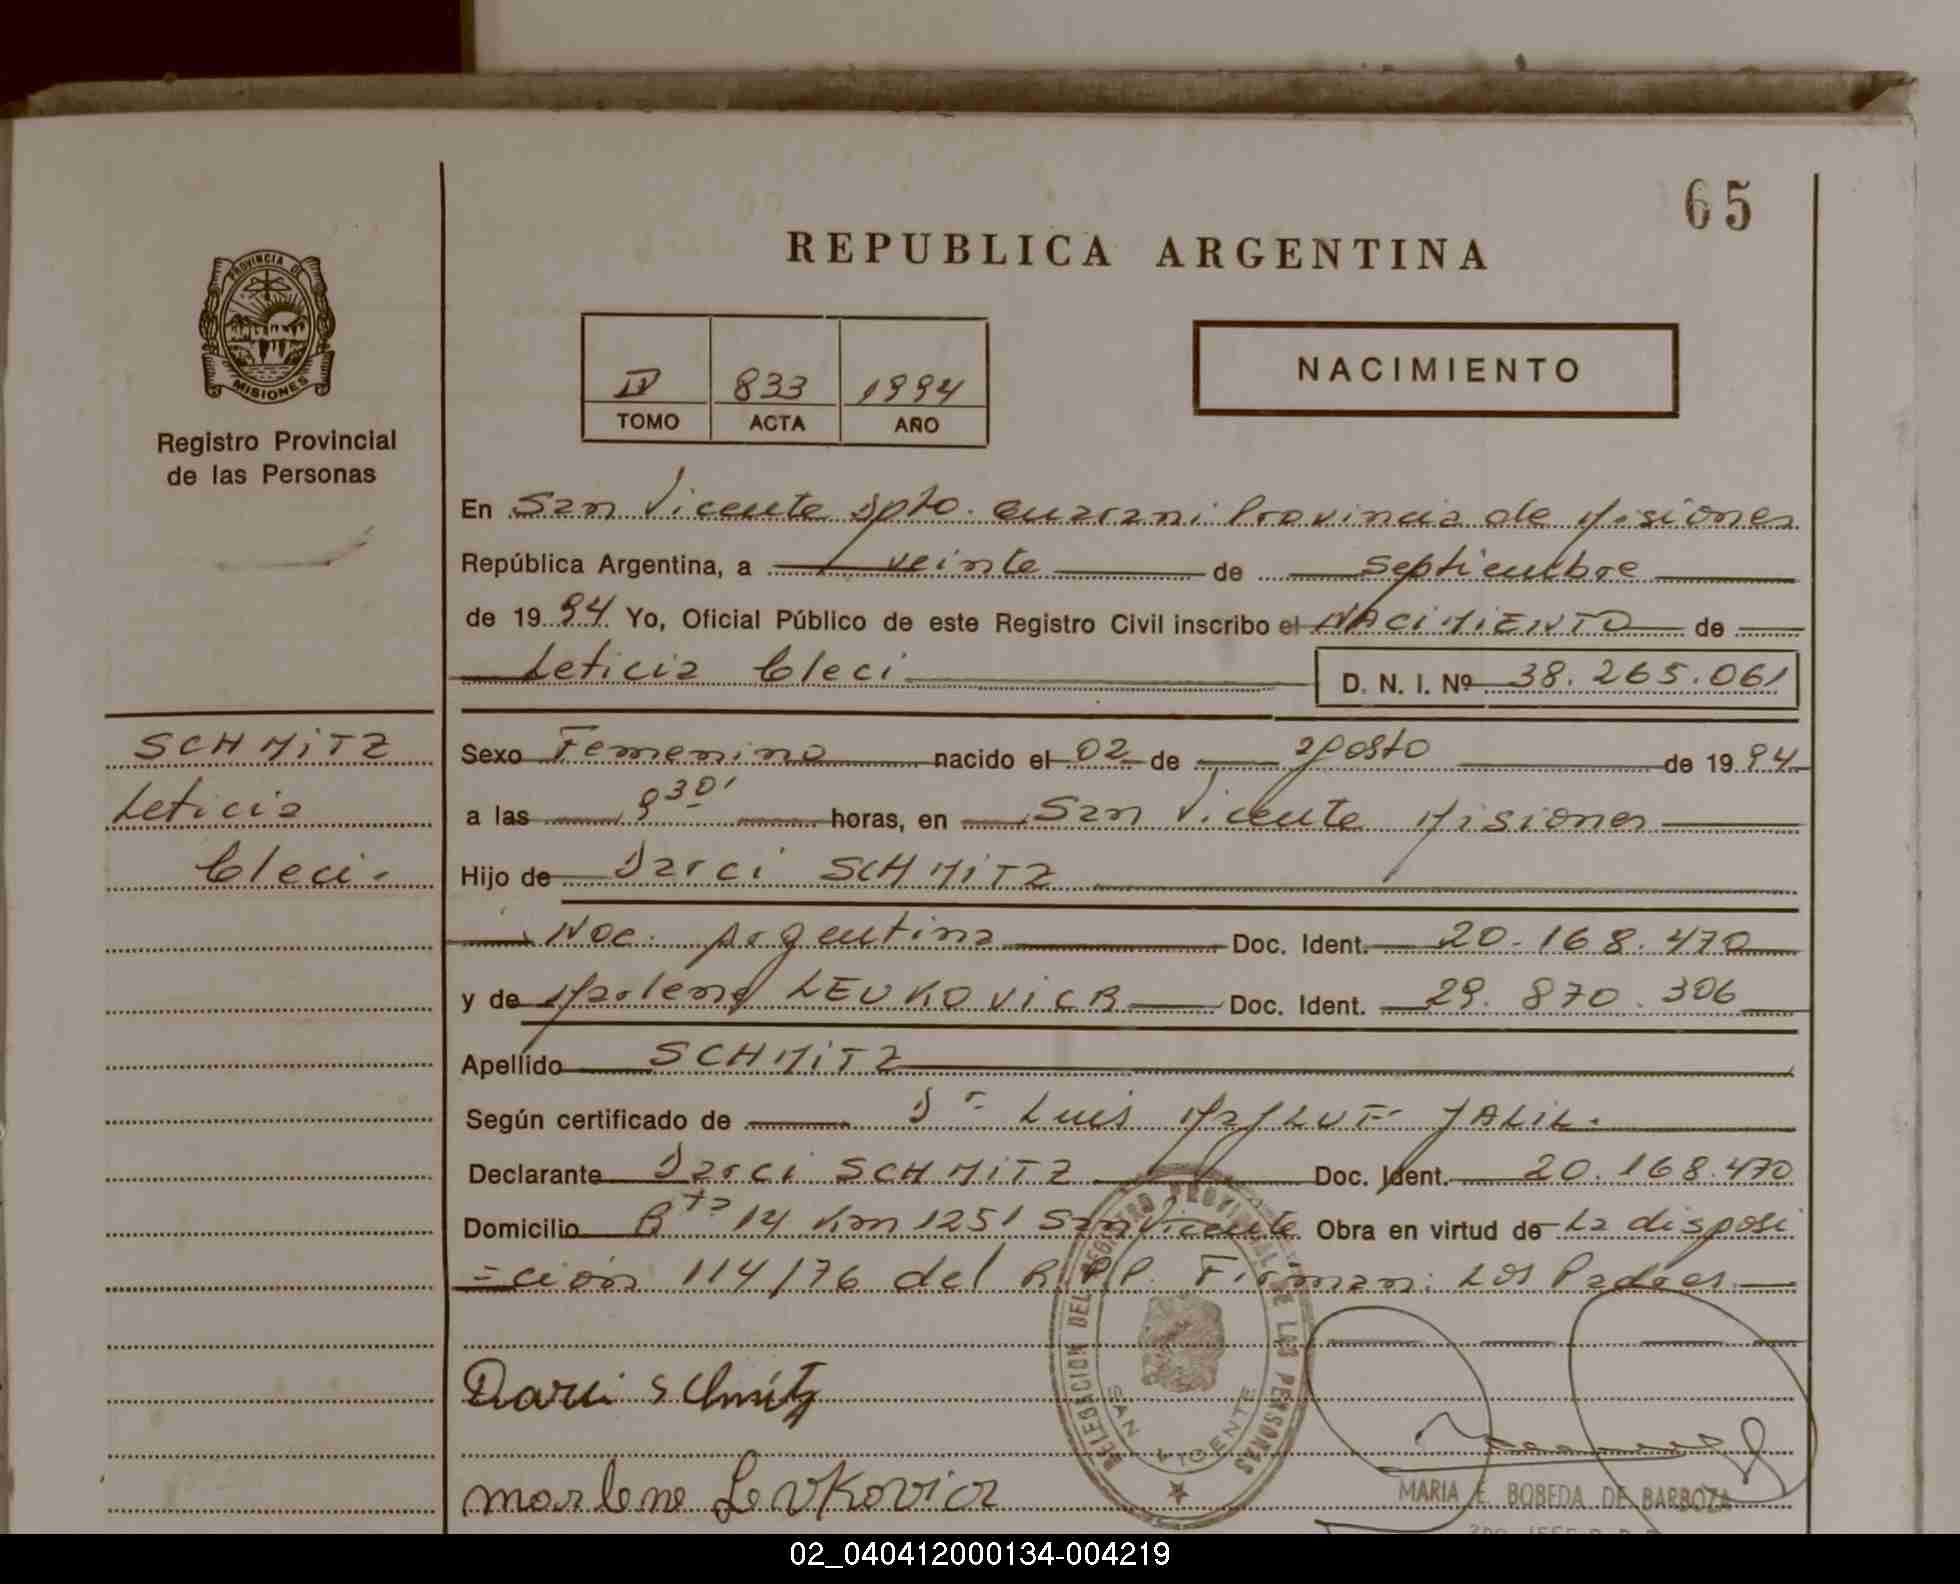 65
REPUBLICA ARGENTINA
PROVINCIA DE
MISIONES
Registro Provincial
de las Personas
IV 833 1994
TOMO ACTA AÑO
NACIMIENTO
En San Vicente Dpto. Guarani Provincia de Misiones
República Argentina, a veinte de septiembre
de 1994 Yo, Oficial Público de este Registro Civil inscribo el NACIMIENTO de
Leticia Cleci D. N. I. Nº 38.265.061
SCHMITZ
Leticia
Cleci.-
Sexo Femenino nacido el 02 de agosto de 1994
a las 930' horas, en San Vicente Misiones
Hijo de Darci SCHMITZ
Nac. Argentina Doc. Ident. 20.168.470
y de Marlene LEVKOVICR Doc. Ident. 29.870.306
Apellido SCHMITZ
Según certificado de Dr. Luis JALIL.
Declarante Darci SCHMITZ Doc. Ident. 20.168.470
Domicilio Rta 14 Km 1251 San Vicente Obra en virtud de La disposi
=ción 114/76 del R.P.P. Firman: Los Padres
Darci Schmitz
Marlene Levkovicz
DELEGACION DEL REGISTRO PROVINCIAL DE LAS PERSONAS
SAN VICENTE
MARIA E. BOBEDA DE BARBOZA
02_040412000134-004219